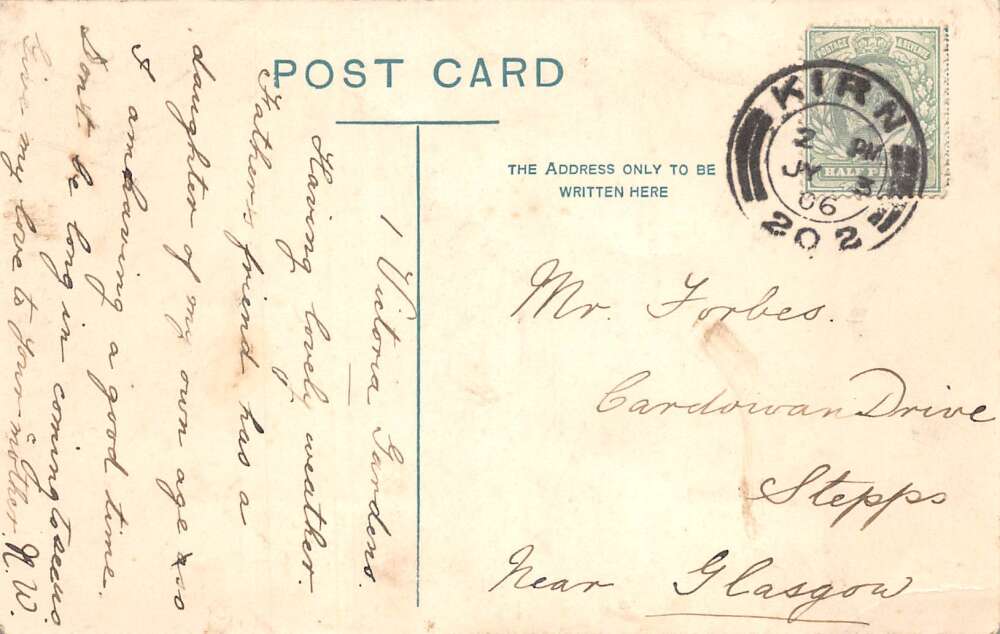 POST CARD
THE ADDRESS ONLY TO BE
WRITTEN HERE
POSTAGE REVENUE
HALF PE
KIRN
2 PM
JY 3
06
202
1 Victoria Gardens.
Having lovely weather.
Father's friend has a
daughter of my own age so
I am having a good time.
Dont be long in coming to see us
Give my love to your mother. N.W.
Mr. Forbes.
Cardowan Drive
Stepps
Near Glasgow